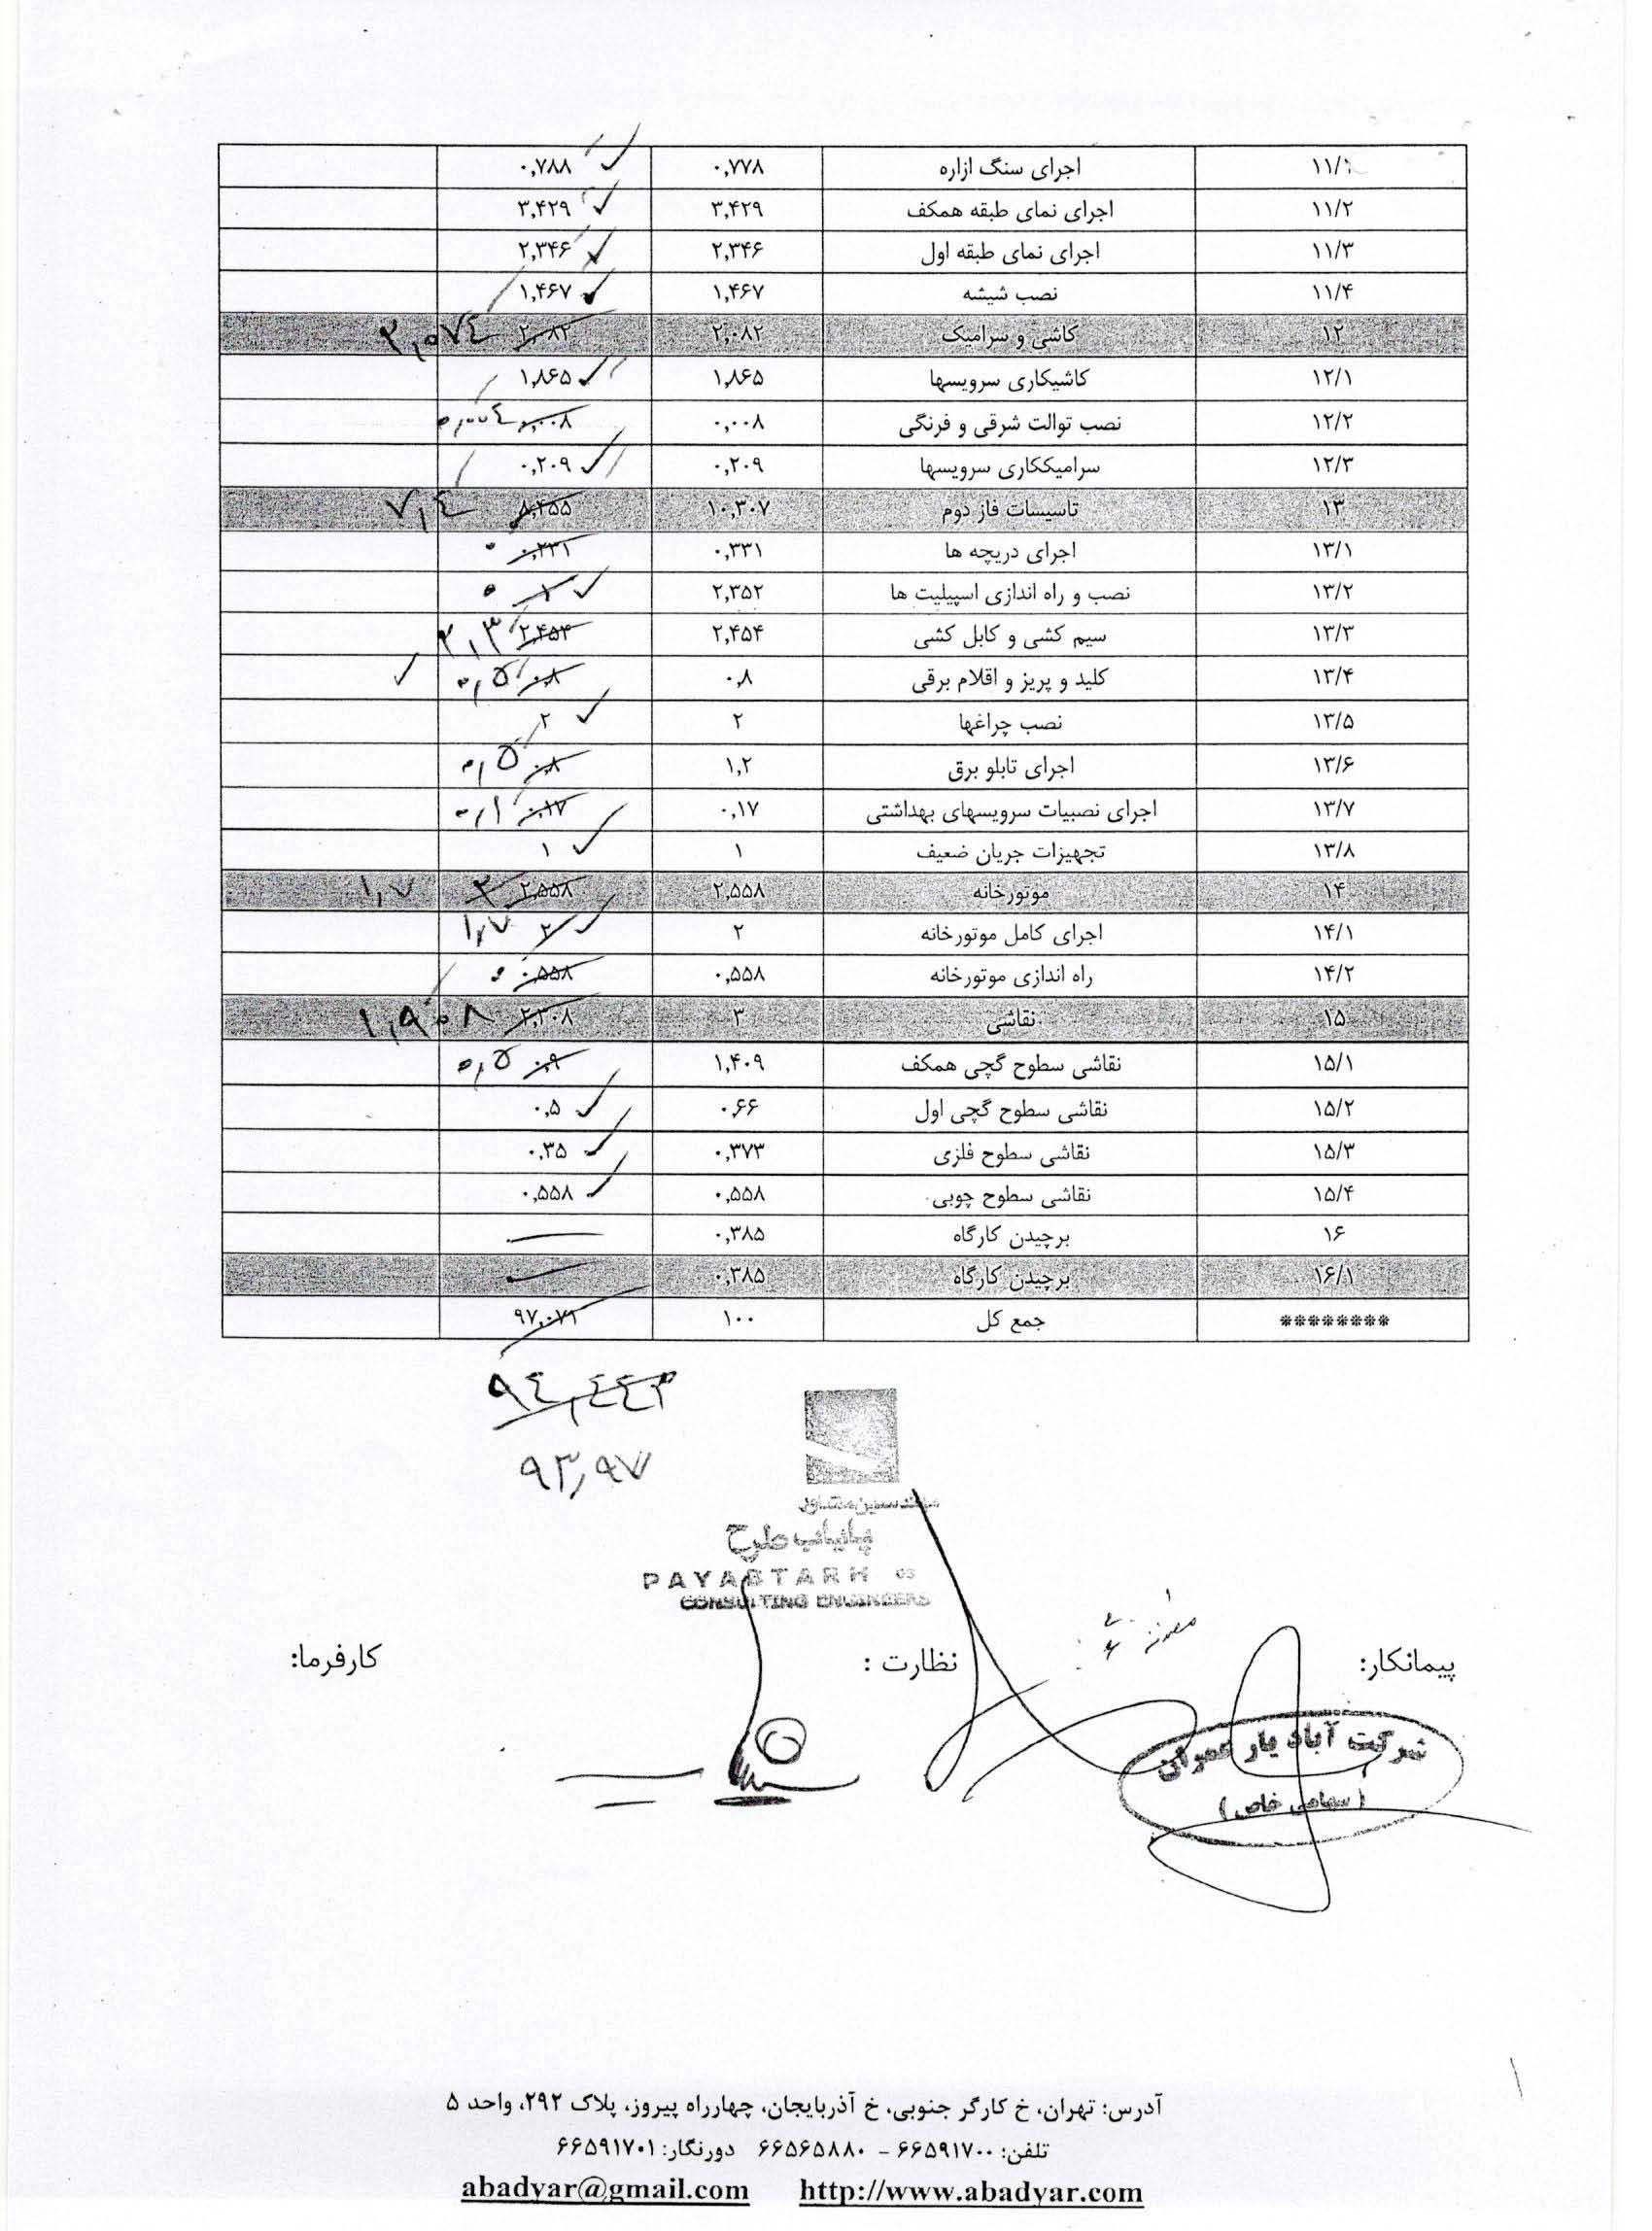 ۱۱/۱ اجرای سنگ ازاره ۰,۷۷۸ ۰,۷۸۸
۱۱/۲ اجرای نمای طبقه همکف ۳,۴۲۹ ۳,۴۲۹
۱۱/۳ اجرای نمای طبقه اول ۲,۳۴۶ ۲,۳۴۶
۱۱/۴ نصب شیشه ۱,۴۶۷ ۱,۴۶۷
۱۲ کاشی و سرامیک ۲,۰۸۲ ۲,۰۸۲
۱۲/۱ کاشیکاری سرویسها ۱,۸۶۵ ۱,۸۶۵
۱۲/۲ نصب توالت شرقی و فرنگی ۰,۰۰۸ ۰,۰۰۸
۱۲/۳ سرامیککاری سرویسها ۰,۲۰۹ ۰,۲۰۹
۱۳ تاسیسات فاز دوم ۱۰,۳۰۷ ۸,۴۵۵ ۷,٤
۱۳/۱ اجرای دریچه ها ۰,۳۳۱ ۰,۲۳۱ ۰
۱۳/۲ نصب و راه اندازی اسپیلیت ها ۲,۳۵۲ ۱ ۰
۱۳/۳ سیم کشی و کابل کشی ۲,۴۵۴ ۲,۴۵۴ ۲,۳
۱۳/۴ کلید و پریز و اقلام برقی ۰,۸ ۰,۸ ۰,۵
۱۳/۵ نصب چراغها ۲ ۲
۱۳/۶ اجرای تابلو برق ۱,۲ ۰,۸ ۰,۵
۱۳/۷ اجرای نصبیات سرویسهای بهداشتی ۰,۱۷ ۰,۱۷ ۰,۱
۱۳/۸ تجهیزات جریان ضعیف ۱ ۱
۱۴ موتورخانه ۲,۵۵۸ ۲,۵۵۸ ۲ ۱,۷
۱۴/۱ اجرای کامل موتورخانه ۲ ۲ ۱,۷
۱۴/۲ راه اندازی موتورخانه ۰,۵۵۸ ۰,۵۵۸ ۰
۱۵ نقاشی ۳ ۲,۳۰۸ ۱,۹۰۸
۱۵/۱ نقاشی سطوح گچی همکف ۱,۴۰۹ ۰,۹ ۰,۵
۱۵/۲ نقاشی سطوح گچی اول ۰,۶۶ ۰,۵
۱۵/۳ نقاشی سطوح فلزی ۰,۳۷۳ ۰,۳۵
۱۵/۴ نقاشی سطوح چوبی ۰,۵۵۸ ۰,۵۵۸
۱۶ برچیدن کارگاه ۰,۳۸۵ —
۱۶/۱ برچیدن کارگاه ۰,۳۸۵ —
******** جمع کل ۱۰۰ ۹۷,۰۷۱
۹٤,٤٤۳
۹۳,۹۷
مهندسین مشاور
پایاب طرح
PAYABTARH
CONSULTING ENGINEERS
پیمانکار: نظارت : کارفرما:
شرکت آباد یار عمران
(سهامی خاص)
آدرس: تهران، خ کارگر جنوبی، خ آذربایجان، چهارراه پیروز، پلاک ۲۹۲، واحد ۵
تلفن: ۶۶۵۹۱۷۰۰ - ۶۶۵۶۵۸۸۰ دورنگار: ۶۶۵۹۱۷۰۱
abadyar@gmail.com http://www.abadyar.com